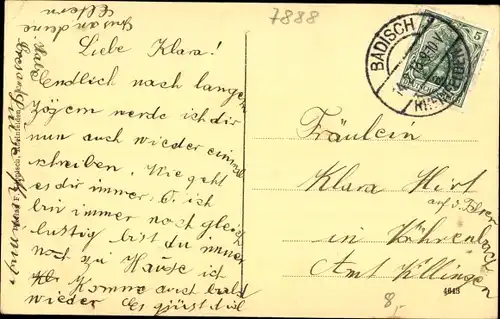 7888
Liebe Klara!
Endlich nach langem
Zögern werde ich dir
nun auch wieder einmal
schreiben. Wie geht
es dir immer? ich
bin immer noch gleich
lustig bist du immer
noch zu Hause ich
Komme auch bald
wieder Es grüst dich
Gruss an deine
Eltern
BADISCH
RHEINFELDEN
5
Fräulein
Klara Hirt
auf d.
in Vöhrenbach
Amt Villingen
4643
8,-